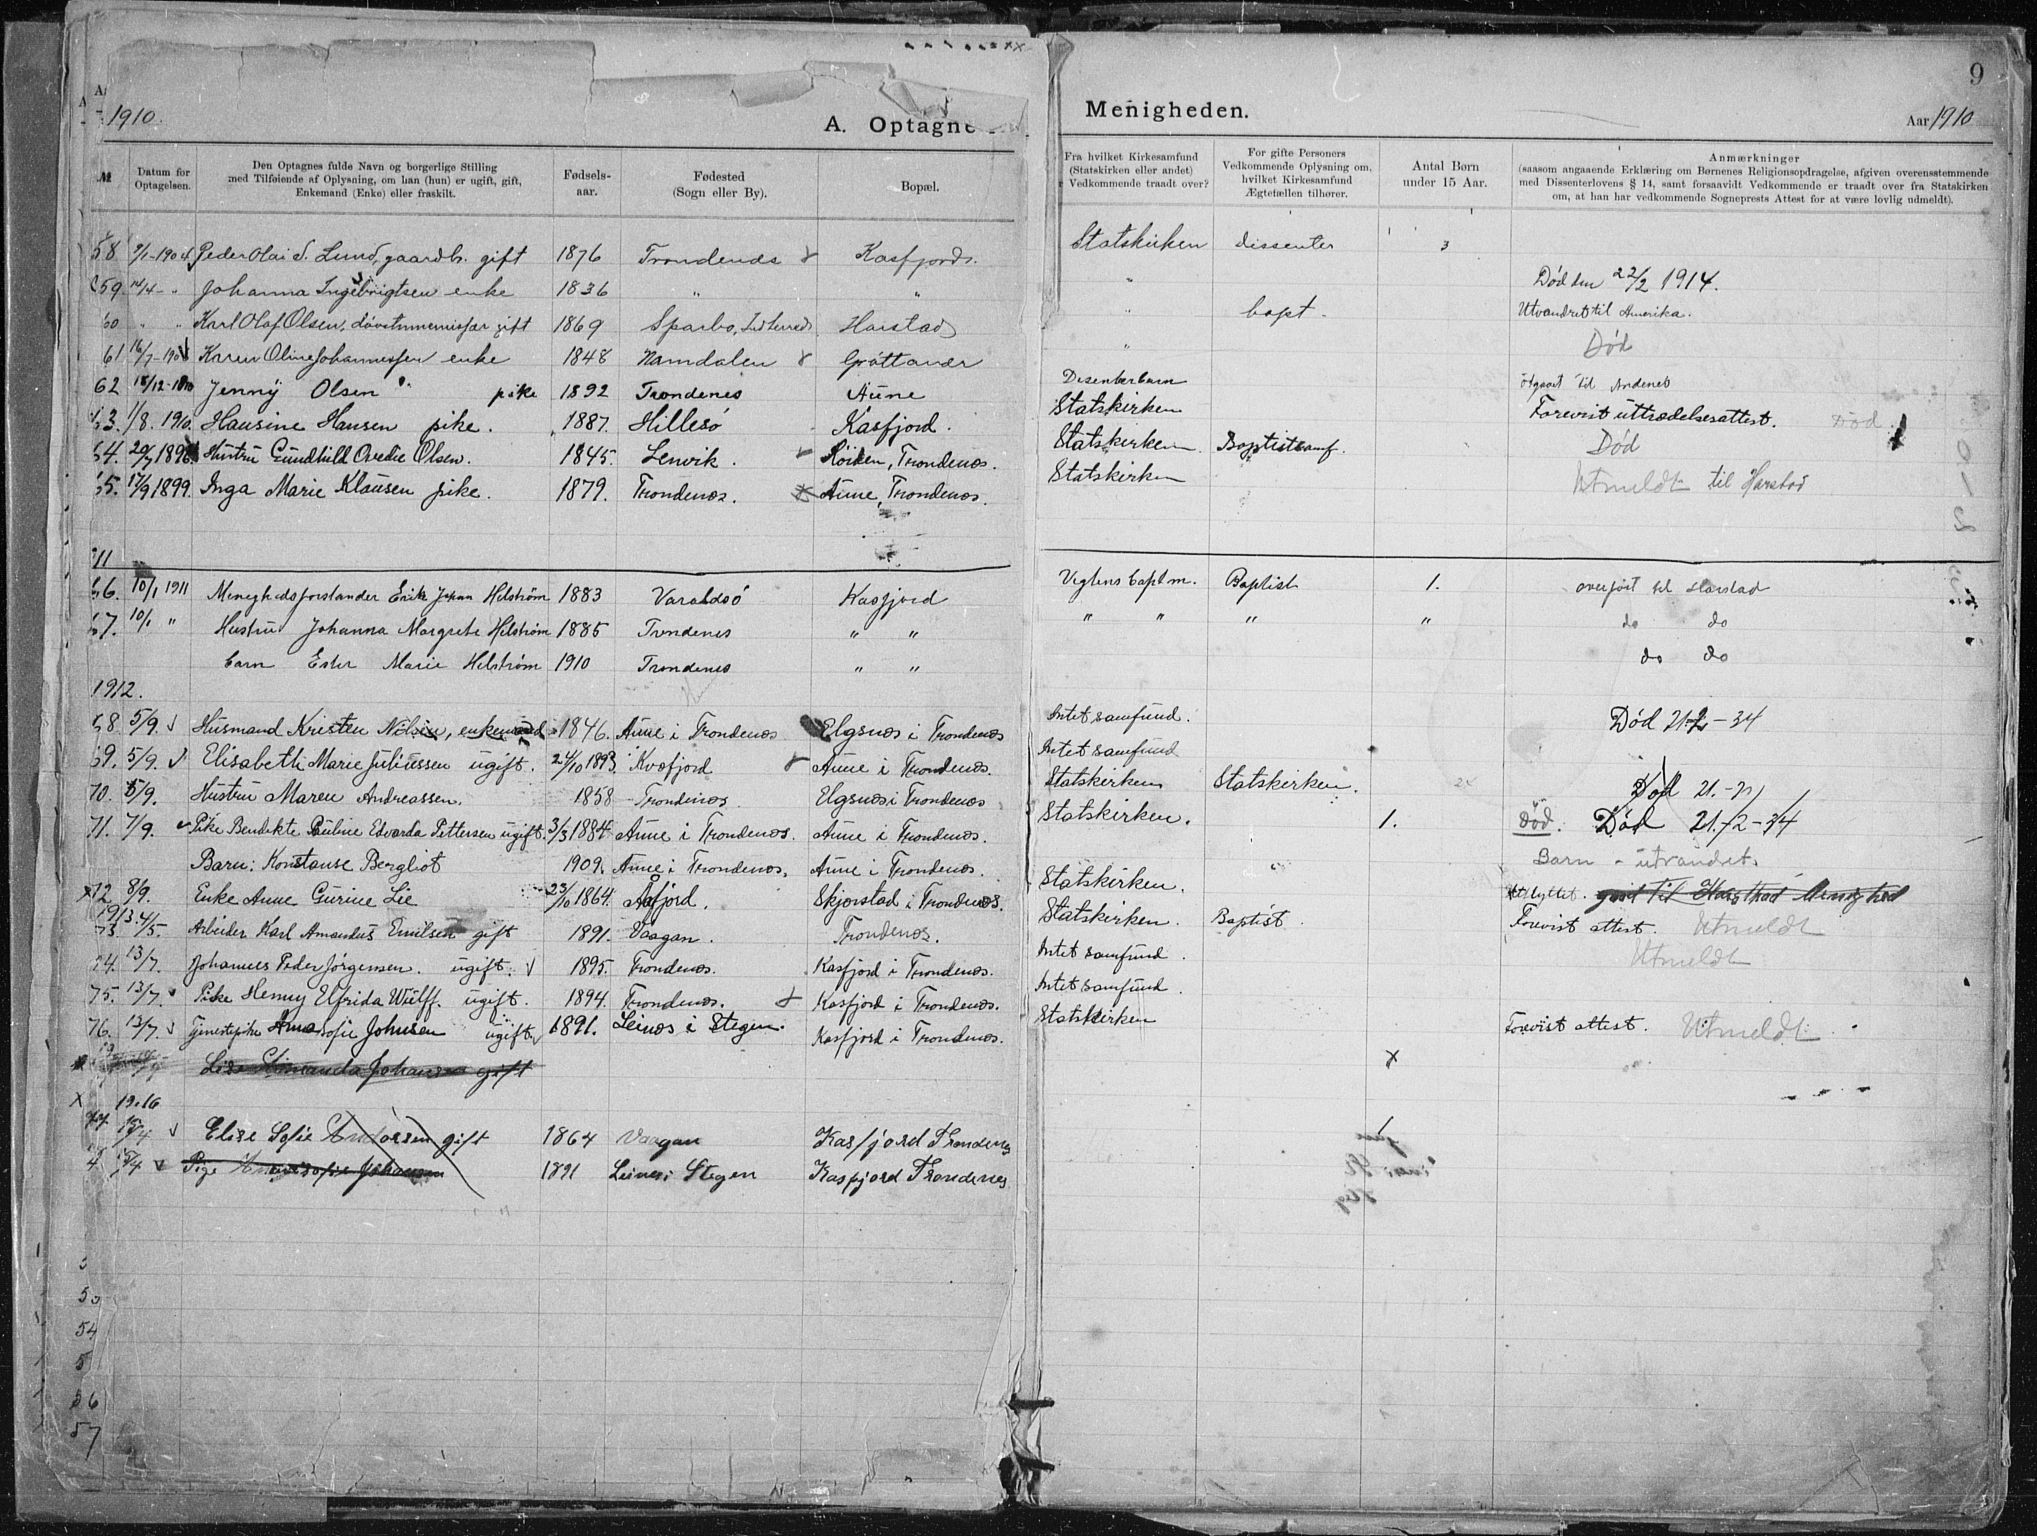 9
1910.
A. Optagne
Menigheden.
Aar 1910
№
Datum for Optagelsen.
Den Optagnes fulde Navn og borgerlige Stilling
med Tilføiende af Oplysning, om han (hun) er ugift, gift,
Enkemand (Enke) eller fraskilt.
Fødsels-
aar.
Fødested
(Sogn eller By).
Bopæl.
Fra hvilket Kirkesamfund
(Statskirken eller andet)
Vedkommende traadt over?
For gifte Personers
Vedkommende Oplysning om,
hvilket Kirkesamfund
Ægtefællen tilhører.
Antal Børn
under 15 Aar.
Anmærkninger
(saasom angaaende Erklæring om Børnenes Religionsopdragelse, afgiven overensstemmende
med Dissenterlovens § 14, samt forsaavidt Vedkommende er traadt over fra Statskirken
om, at han har vedkommende Sogneprests Attest for at være lovlig udmeldt).
58 9/1-1904 Peder Olai S. Lund, gaardb. gift 1876 Trondenes Kasfjord. Statskirken dissenter 3
59. 14/4 - " Johanna Ingebrigtsen enke 1836 " " " Død den 22/2 1914.
60 " " Karl Olaf Olsen, gift 1869 Sparbo, Harstad " bapt. Utvandret til Amerika.
61 16/7-190 Karen Oline Johannessen enke 1848 Namdalen Grøttavær " Død
62 18/12-1910 Jenny Olsen pike 1892 Trondenes Aune Disenterbarn til Andenes
63. 1/8. 1910. Hansine Hansen pike. 1887. Hillesö Kasfjord. Statskirken Forevist uttrædelsesattest. Død
64. 20/7 1896 Hustru Gundhild Ovedie Olsen. 1845. Lenvik. Röiken, Trondenæs. Statskirken. Baptistsamf. Død
65. 17/9 1899. Inga Marie Klausen pike. 1879. Trondenæs. Aune, Trondenæs. Statskirken Utmeldt til Harstad
11
66. 10/1 1911 Menighedsforstander Erik Johan Helström 1883 Varaldsö Kasfjord Vegtens baptm. Baptist 1. overført til Harstad
67. 10/1 " Hustru Johanna Margrete Helström 1885 Trondenes " " " " " " do do
barn Ester Marie Helström 1910 Trondenes " " do do
1912.
68 5/9. Husmand Kristen Nilsen, enkemand 1846. Aune i Trondenæs Elgsnæs i Trondenæs Intet samfund. Død 21-2-34
69. 5/9. Elisabeth Marie Juliussen ugift. 24/10 1893. Kvæfjord Aune i Trondenæs. Intet samfund
70. 5/9. Hustru Maren Andreassen. 1858 Trondenæs. Elgsnæs i Trondenæs Statskirken Statskirken. Død 21.-
71. 7/9. Pike Bendikte Pauline Edvarda Pettersen ugift. 3/3 1884. Aune i Trondenæs. Aune i Trondenæs. Statskirken. 1. Død. Død 21.-2-34
Barn: Konstanse Bergliot 1909. Aune i Trondenæs. Aune i Trondenæs. Barn - utvandret.
x72 8/9. Enke Anne Gurine Lie 23/10 1864. Aafjord. Skjærstad i Trondenæs. Statskirken. Utflyttet. gaat til Harsthad Menighed
1913.
73. 4/5. Arbeider Karl Amandus Emilsen gift 1891. Vaagan. Trondenæs. Statskirken. Baptist. Forevist attest. Utmeldt
74. 13/7. Johannes Peder Jørgensen. ugift. 1895. Trondenæs. Kasfjord i Trondenæs. Intet samfund. Utmeldt
75. 13/7. Pike Henny Elfrida Wulff. ugift. 1894. Trondenæs. Kasfjord i Trondenæs. Intet samfund.
76. 13/7. Tjenestepike Anna Sofie Johnsen ugift. 1891. Leinæs i Stegen. Kasfjord i Trondenæs. Statskirken Forevist attest. Utmeldt
Amanda Johansen gift x
x 1916
77 15/4 Elise Sofie Andersen gift 1864 Vaagan Kasfjord Trondenes
15/4 Pige Johansen 1891 Leines i Stegen Kasfjord Trondenes
54
5
56
57